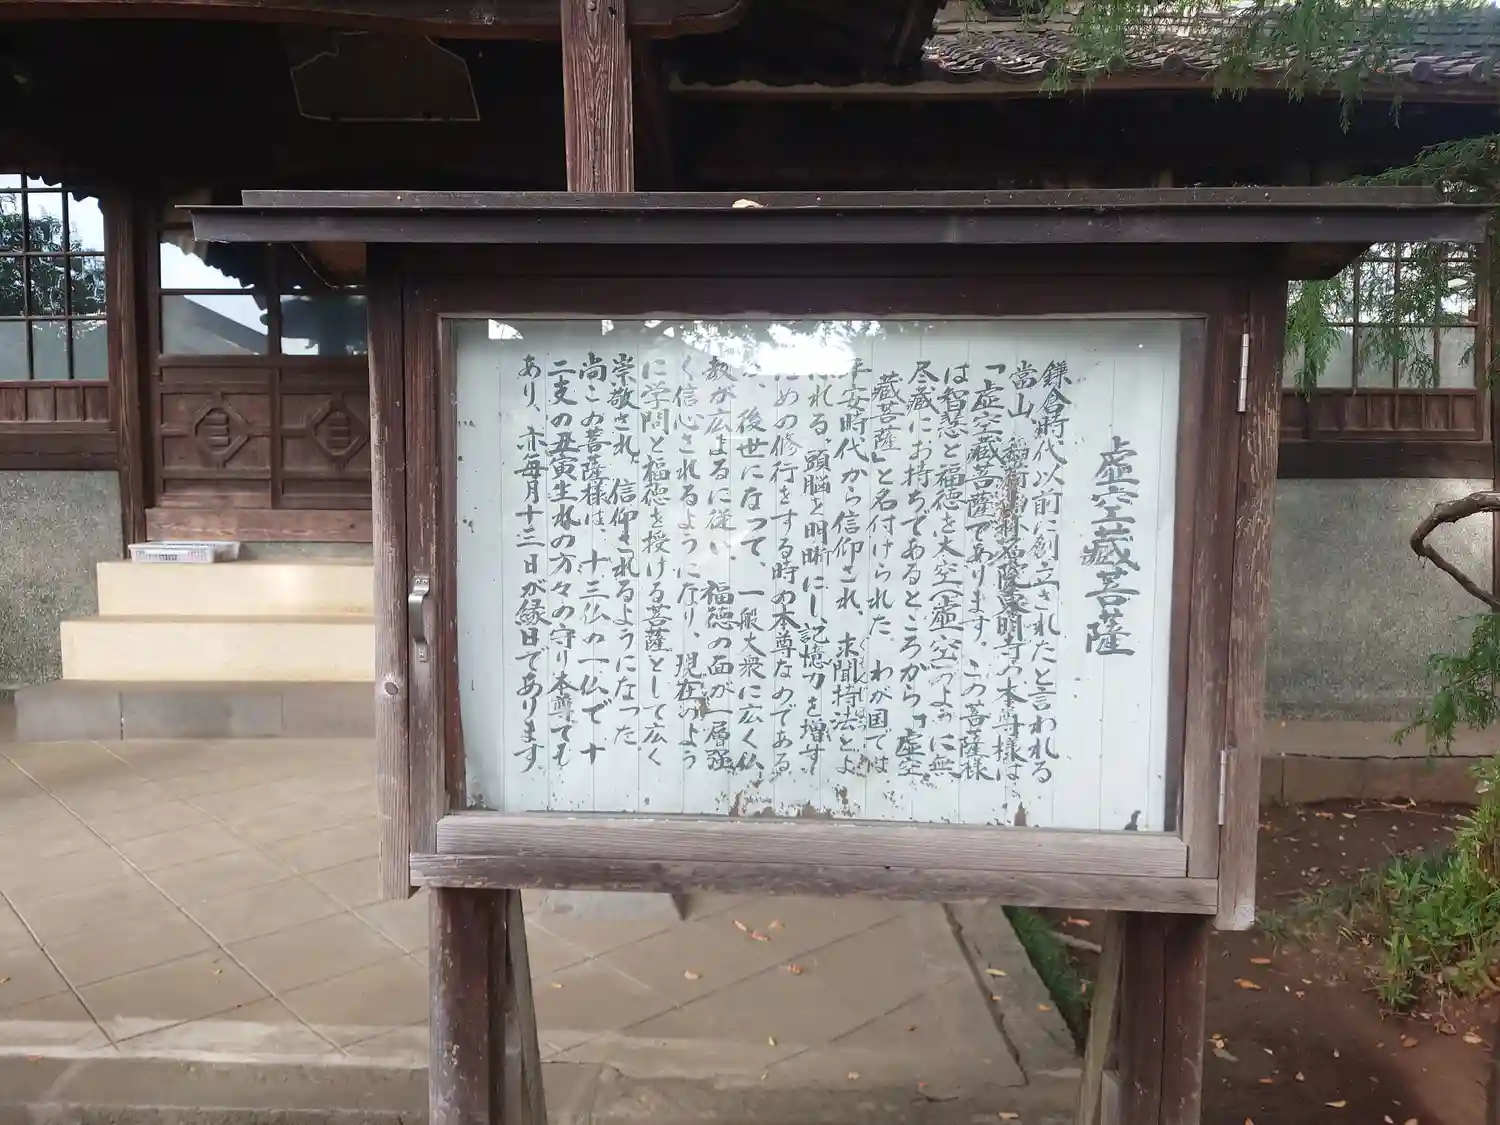 虚空蔵菩薩
鎌倉時代以前に創立されたと言われる
当山、稲荷山 明寺の本尊様は
「虚空蔵菩薩であります。この菩薩様
は智慧と福徳を大空(虚空)のように無
尽蔵にお持ちであるところから「虚空
蔵菩薩」と名付けられた。わが国では
平安時代から信仰され、求聞持法とよ
ばれる、頭脳を明晰にし、記憶力を増す
ための修行をする時の本尊なのである
後世になって、一般大衆に広く仏
教が広まるに従い、福徳の面が一層強
く信心されるようになり、現在のよう
に学問と福徳を授ける菩薩として広く
崇敬され、信仰されるようになった
尚この菩薩様は、十三仏の一仏で十
二支の丑寅生れの方々の守り本尊でも
あり、亦毎月十三日が縁日であります。